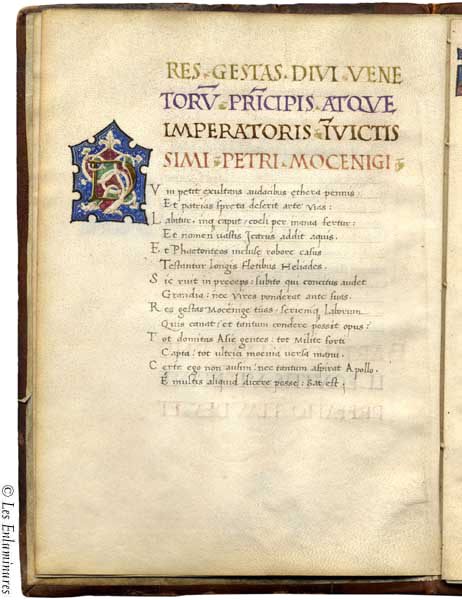 RES GESTAS DIVI VENE
TORṼ PRĨCIPIS ATQVE
IMPERATORIS ĨVICTIS
SIMI PETRI MOCENIGI
DVm petit exultans audacibus ethera pennis:
Et patrias spreta deserit arte vias:
Labitur. inq caput coeli per inania fertur:
Et nomen vastis Icarus addit aquis.
Et Phaetonteos incluse robore casus
Testantur longis fletibus Heliades.
Sic ruit in preceps: subito qui concitus audet
Grandia: nec vires ponderat ante suas.
Res gestas Mocenige tuas: seriemq laborum
Quis canat: et tantum condere possit opus:
Tot domitas Asie gentes: tot milite forti
Capta: tot ultrici moenia versa manu.
Certe ego non ausim: nec tantum aspirat Apollo.
E multis aliquid dicere posse: sat est.
© Les Enluminures